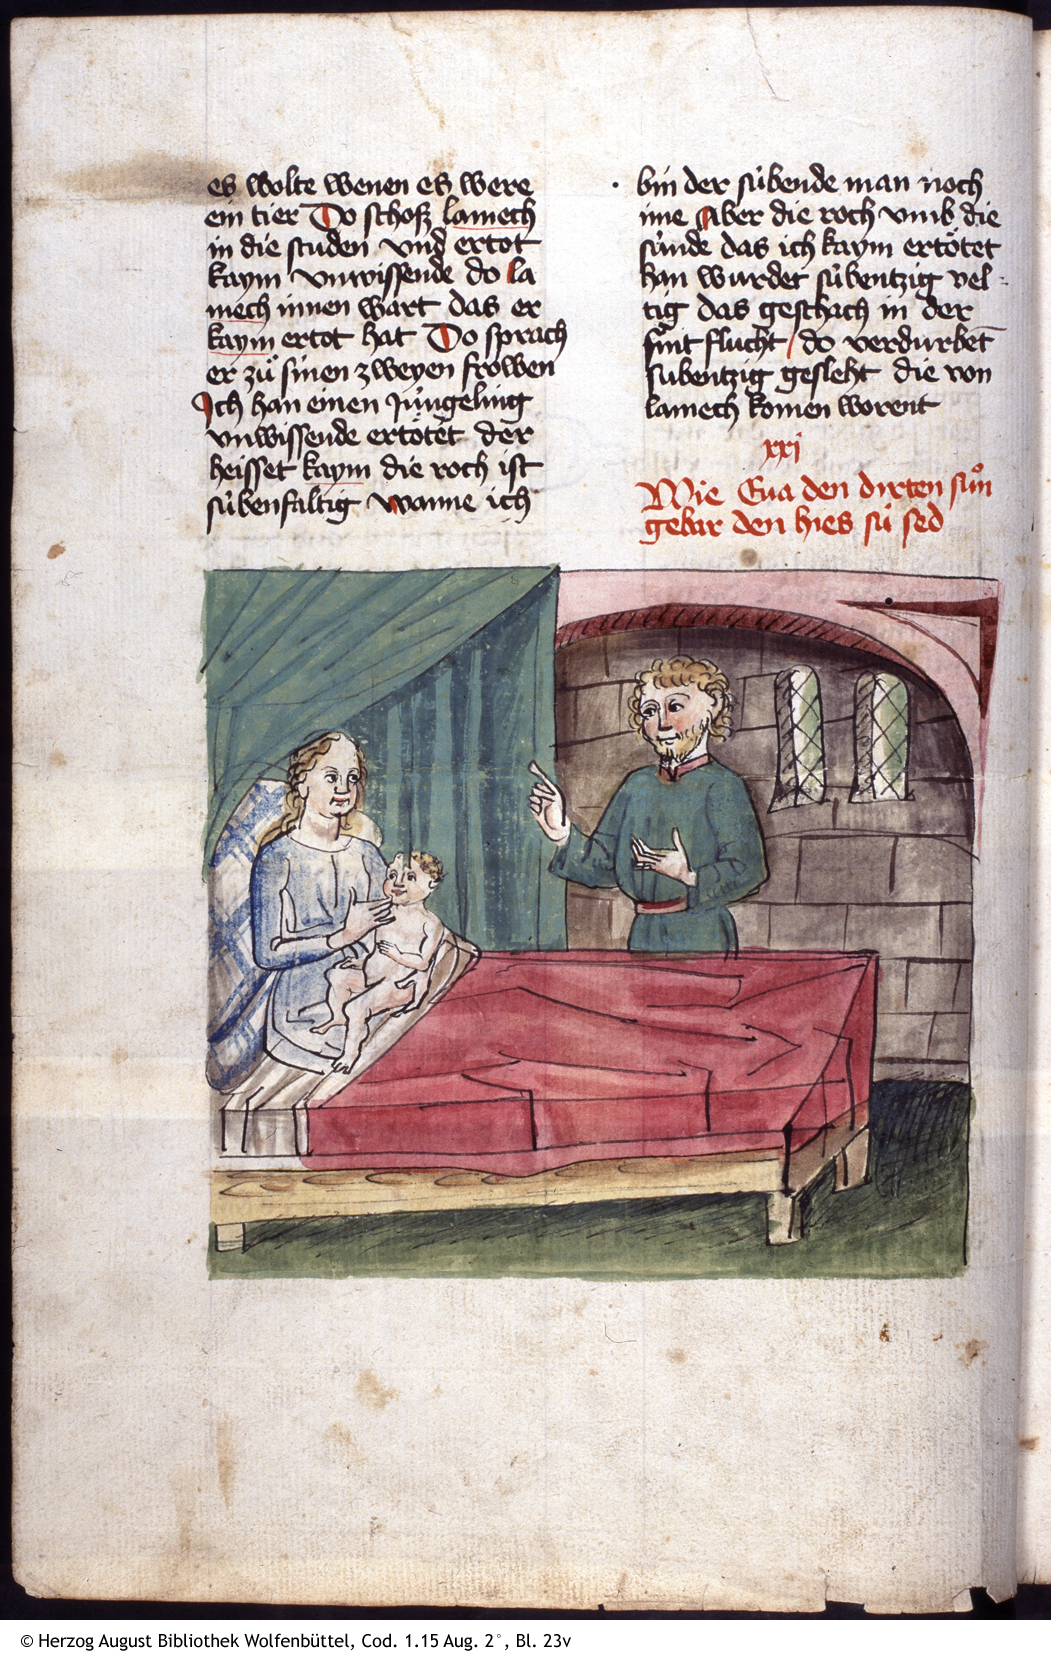 es wolte wenen es were
ein tier Do schosz lamech
in die studen vnd ertot
kaym vnwissende do la
mech innen wart das er
kaym ertot hat Do sprach
er zuͦ sinen zweyen frowen
Ich han einen Jungeling
vnwissende ertoͤtet der
heisset kaym die roch ist
sübenfaltig wanne ich
bin der sübende man noch
ime Aber die roch vmb die
sünde das ich kaym ertoͤtet
han wurdet sübentzig vel
tig das geschach in der
flucht / do verdurbēt
sübentzig gesleht die von
lamech komen worent
xxi
Wie Eua den dirten suͦn
gebar den hies sü sed
© Herzog August Bibliothek Wolfenbüttel, Cod. 1.15 Aug. 2°, Bl. 23v